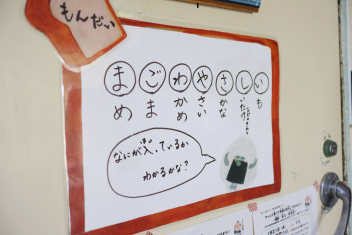 もんだい
まめ
ごま
わかめ
やさい
さかな
しいたけ
いも
なにが入っているか
わかるかな？